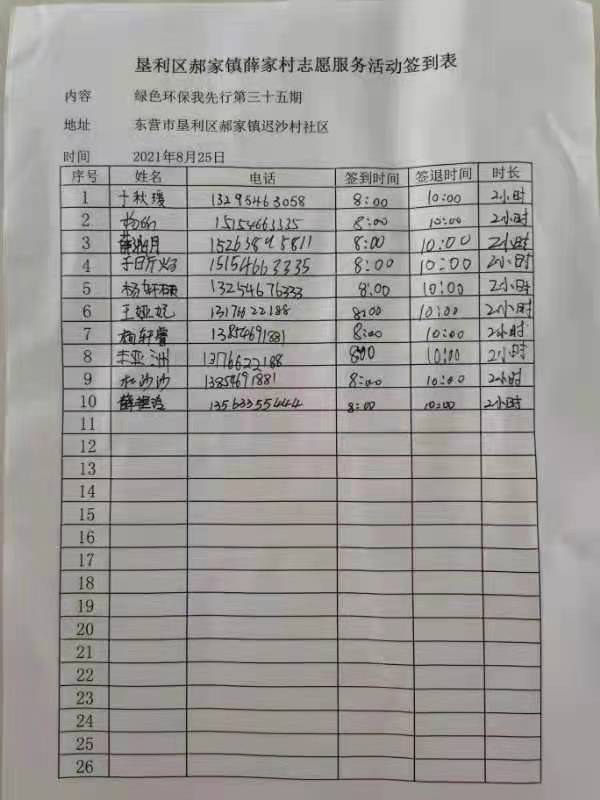 垦利区郝家镇薛家村志愿服务活动签到表
内容 绿色环保我先行第三十五期
地址 东营市垦利区郝家镇迟沙村社区
时间 2021年8月25日
序号 姓名 电话 签到时间 签退时间 时长
1 于秋瑗 13295463058 8:00 10:00 2小时
2 15154663335 8:00 10:00 2小时
3 15263895811 8:00 10:00 2小时
4 15154663335 8:00 10:00 2小时
5 13254676333 8:00 10:00 2小时
6 王娅妮 13176622188 8:00 10:00 2小时
7 杨轩睿 13854691881 8:00 10:00 2小时
8 亚洲 13176622188 8:00 10:00 2小时
9 杜沙沙 13854691881 8:00 10:00 2小时
10 13563355444 8:00 10:00 2小时
11
12
13
14
15
16
17
18
19
20
21
22
23
24
25
26